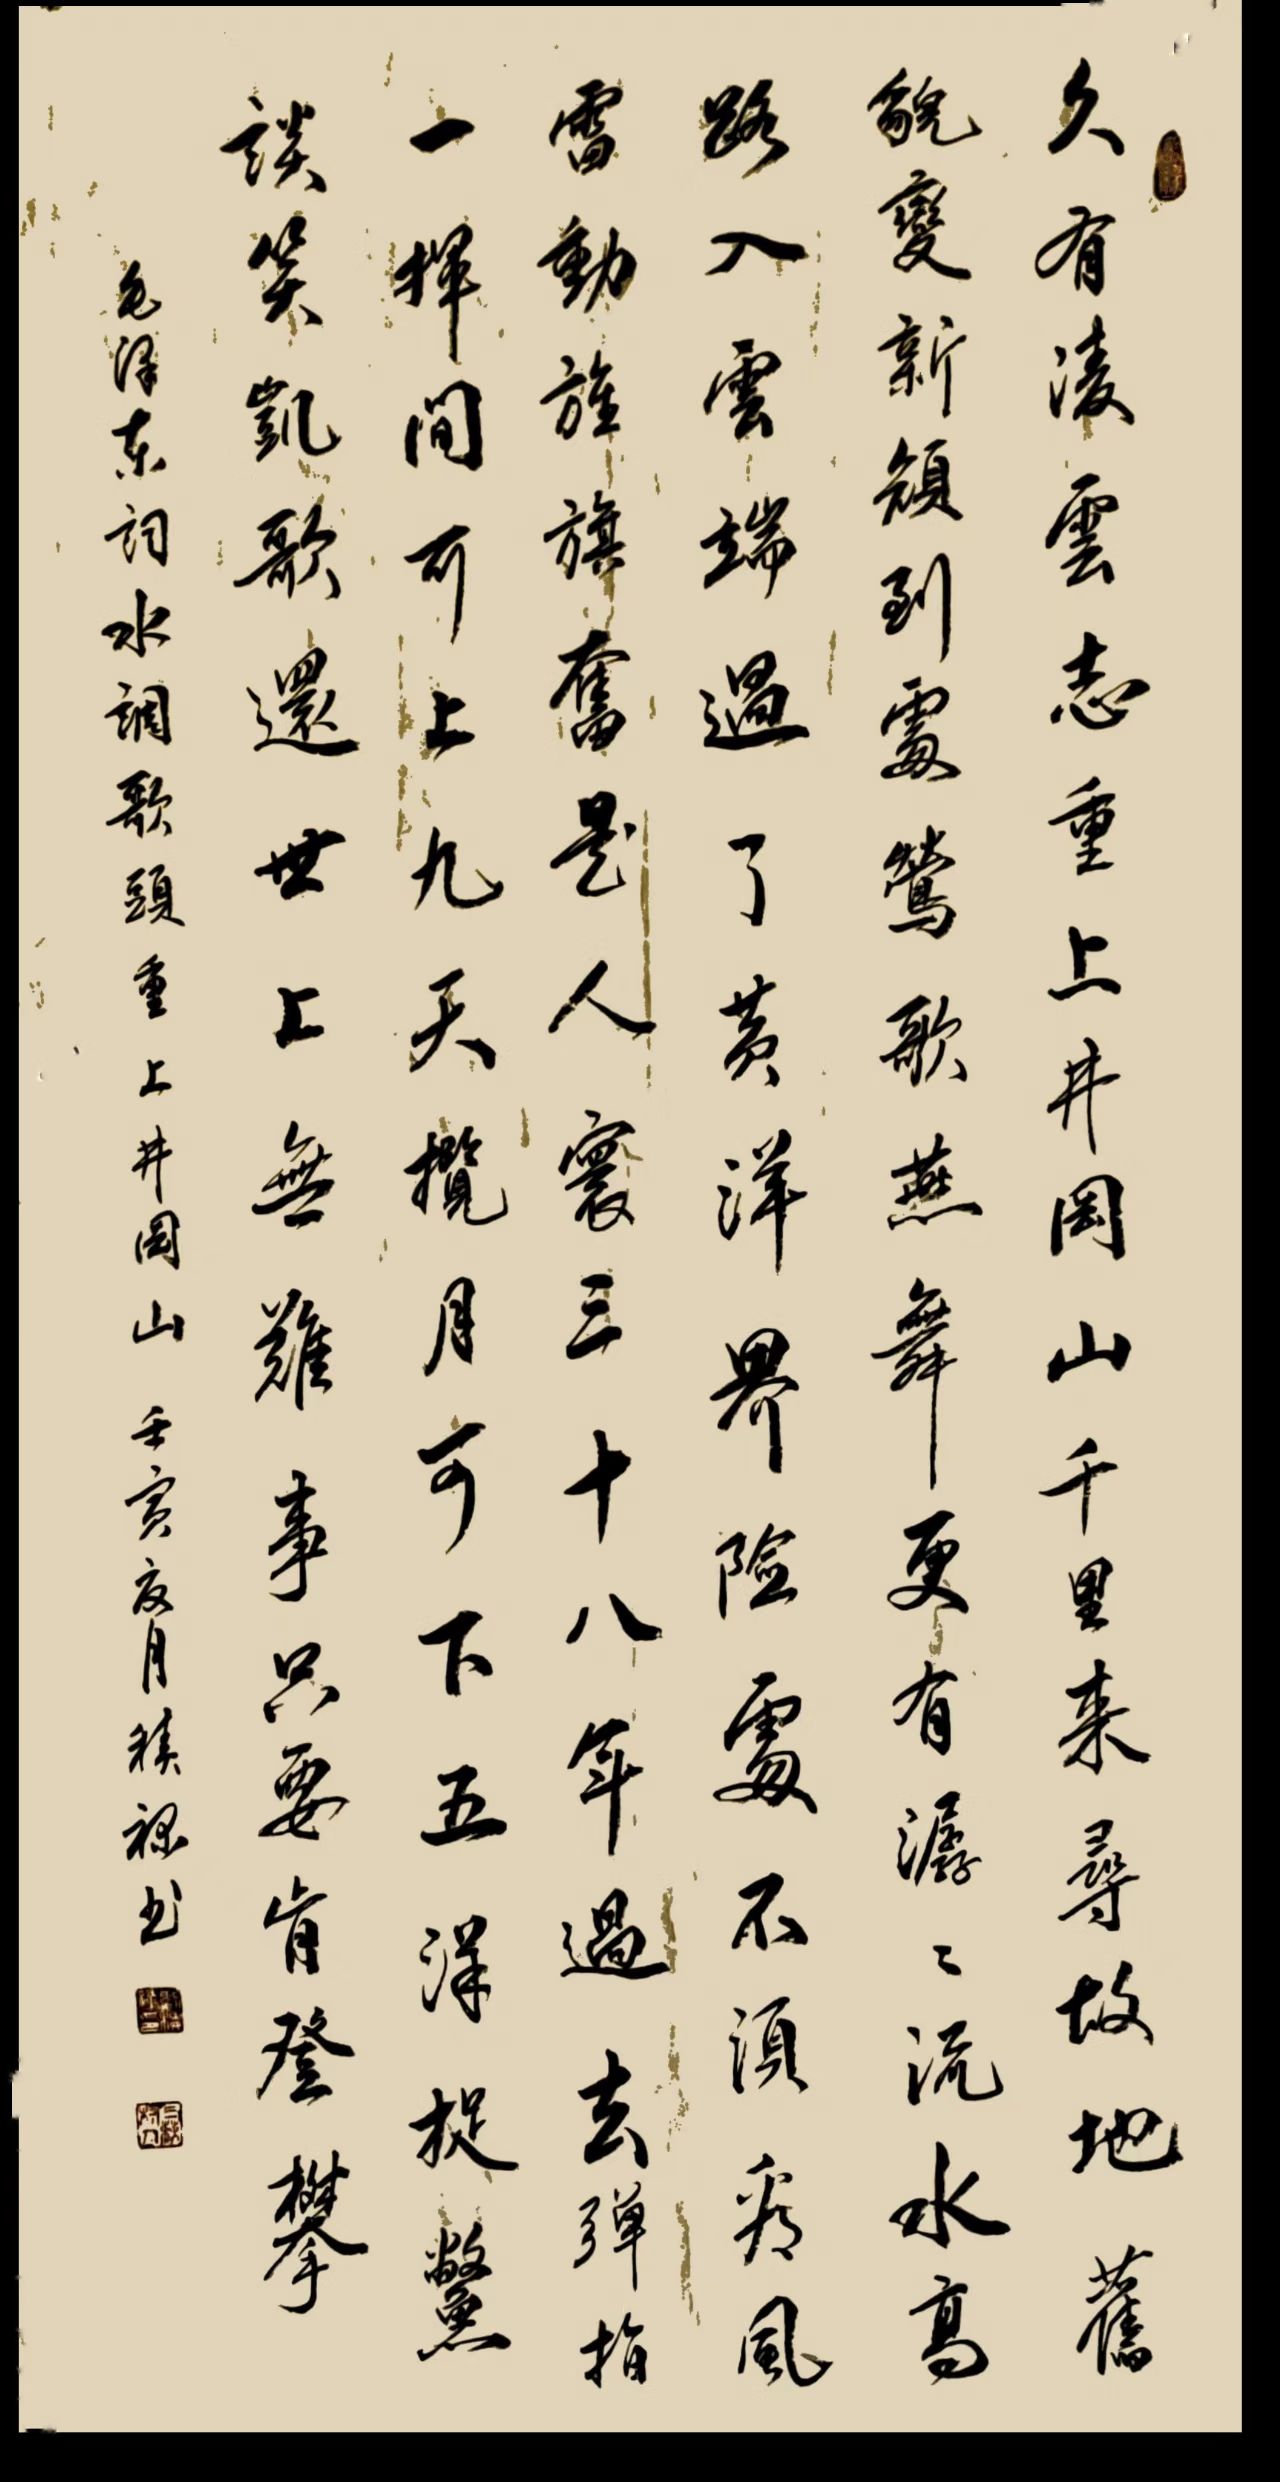 久有凌雲志重上井岡山千里来尋故地舊
貌變新顔到處鶯歌燕舞更有潺〻流水高
路入雲端過了黄洋界險處不須看風
雷動旌旗奮是人寰三十八年過去弹指
一揮間可上九天攬月可下五洋捉鱉
談笑凱歌還世上無難事只要肯登攀
毛泽东詞水調歌頭重上井岡山 壬寅夜月 书